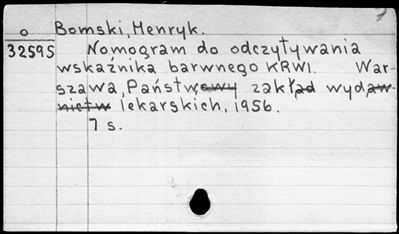 o Bomski, Henryk.
32595 Nomogram do odczytywania
wskaźnika barwnego KRWI. War-
szawa, Państwowy zakład wydaw-
nictw lekarskich, 1956.
7 s.